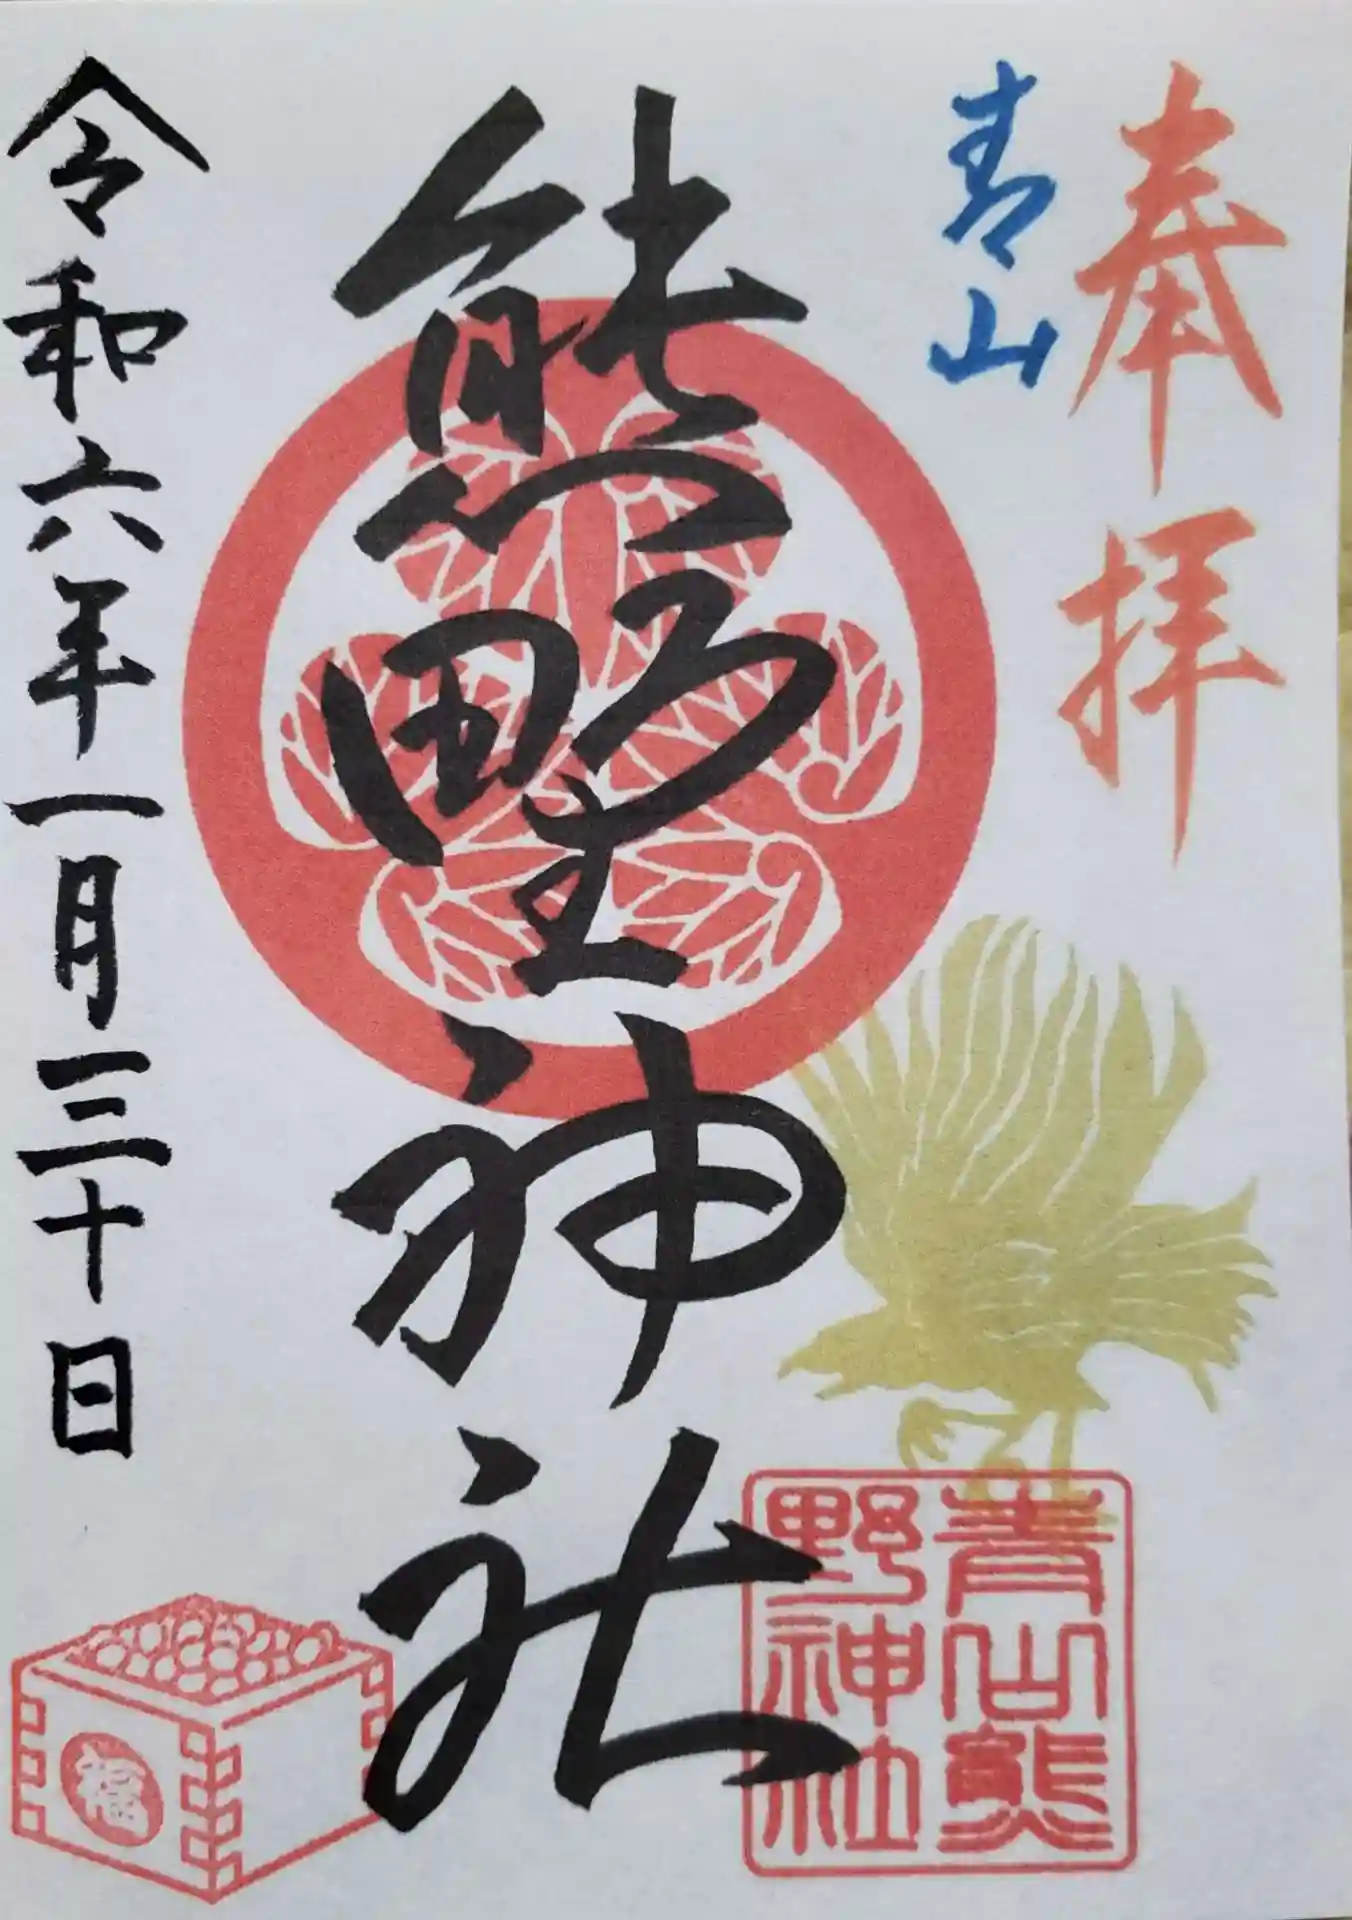 奉拝
青山
熊野神社
令和六年一月三十日
青山熊
野神社
福